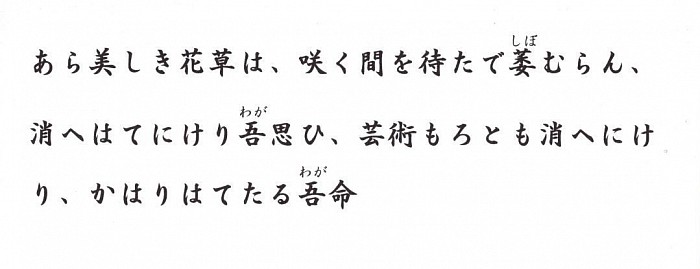 あら美しき花草は、咲く間を待たで萎むらん、
しぼ
消へはてにけり吾思ひ、芸術もろとも消へにけ
わが
り、かはりはてたる吾命
わが